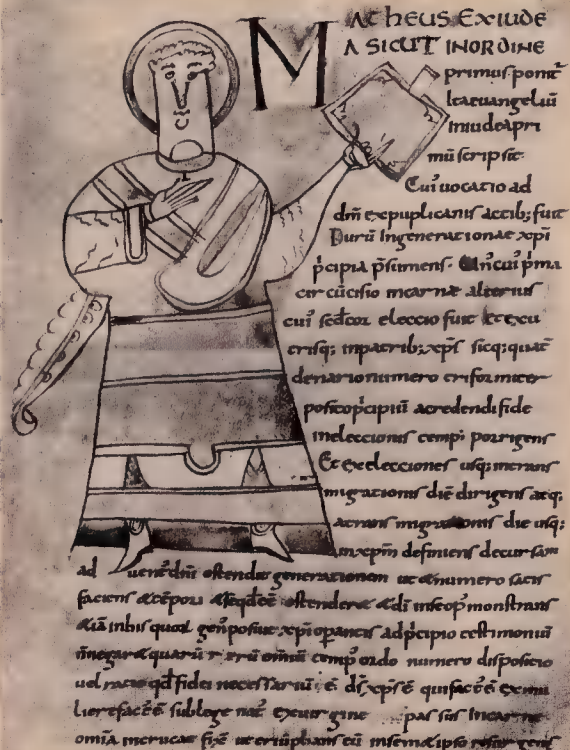 MATHEUS EX IUDE
A SICUT IN ORDINE
primus ponit̄
Ita euangeliū
In iudea pri
mū scripsit
Cui' uocatio ad
dm̄ ex puplicanis actib; fuit
Duru In generationae xp̄i
p̄cipia p̄sumens. Un' cui' p̄ma
circūcisio in carne alterius
cui' sed̄ cor eleccio fuit Et ex u
trisq; in patrib; xp̄s sicq; quat
denario numero triformiter
posito p̄cipiū a credendi fide
in eleccionis temp' porrigens
Et ex elecciones usq; in trans
migrationis diē dirigens atq;
a transmigrationis die usq;
in xp̄m definiens decursam
ad uent' dn̄i ostendit generationem ut & numero satis
faciens & tēpori & se qd̄ eē ostendere & dī in se op' monstrans
&iā in his quor gen' posuit xp̄i opantis a p̄cipio testimoniū
n̄ negar& quarū rerū omiū temp' ordo numero disposicio
uel racio qd fidei necessariū ē ds̄ xp̄s ē qui fact' ē ex mu
liere fact' ē sub lege nat' ex uirgine passus in carne
omīa in cruce fix& ut triūphans eū in sem&ipso resurgens